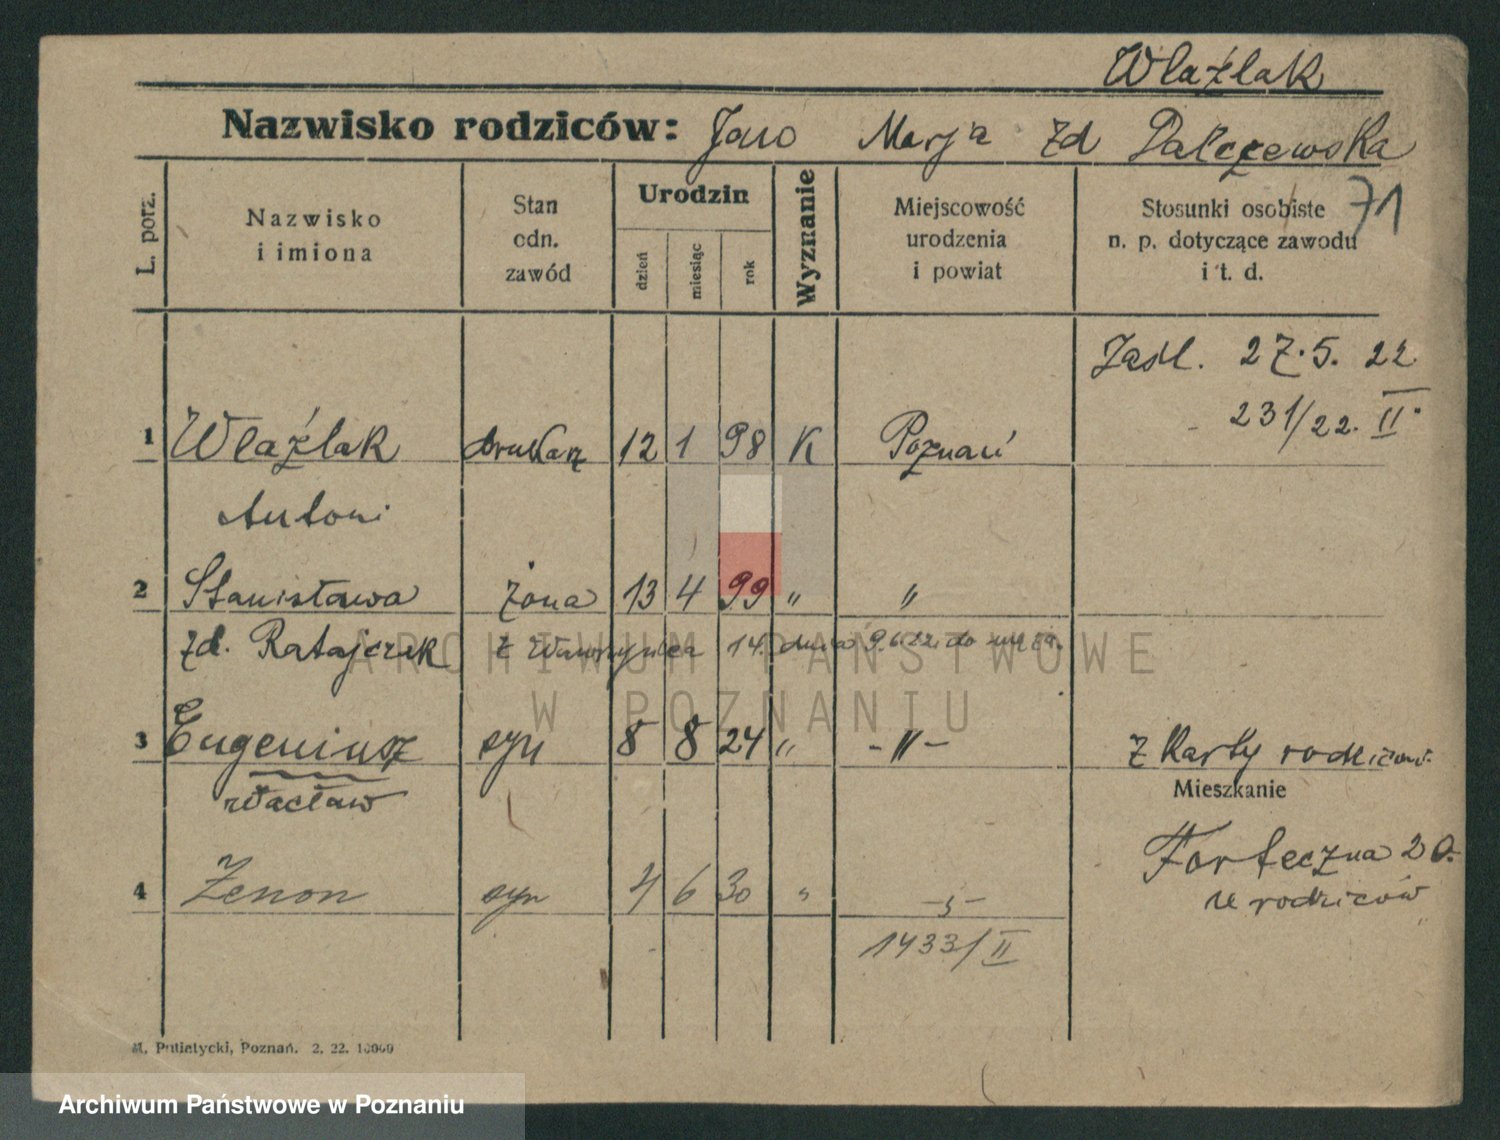 Wlaźlak
Nazwisko rodziców: Jan Marja zd Palczewska
71
L. porz.
Nazwisko
i imiona
Stan
odn.
zawód
Urodzin
dzień
miesiąc
rok
Wyznanie
Miejscowość
urodzenia
i powiat
Stosunki osobiste
n. p. dotyczące zawodu
i t. d.
27.5.22
231/22. II
1 Wlaźlak drukarz 12 1 98 K Poznań
Antoni
2 Stanisława żona 13 4 99 " "
zd. Ratajczak z Wawrzyńca 14. dnia 9.6.22. do męża.
ARCHIWUM PAŃSTWOWE
W POZNANIU
3 Eugeniusz syn 8 8 24 " -"- z Karty rodziców.
Wacław
Mieszkanie
Forteczna 20.
u rodziców
4 Zenon syn 4 6 30 "
1433/II
M. Putiatycki, Poznań. 2. 22. 10000
Archiwum Państwowe w Poznaniu